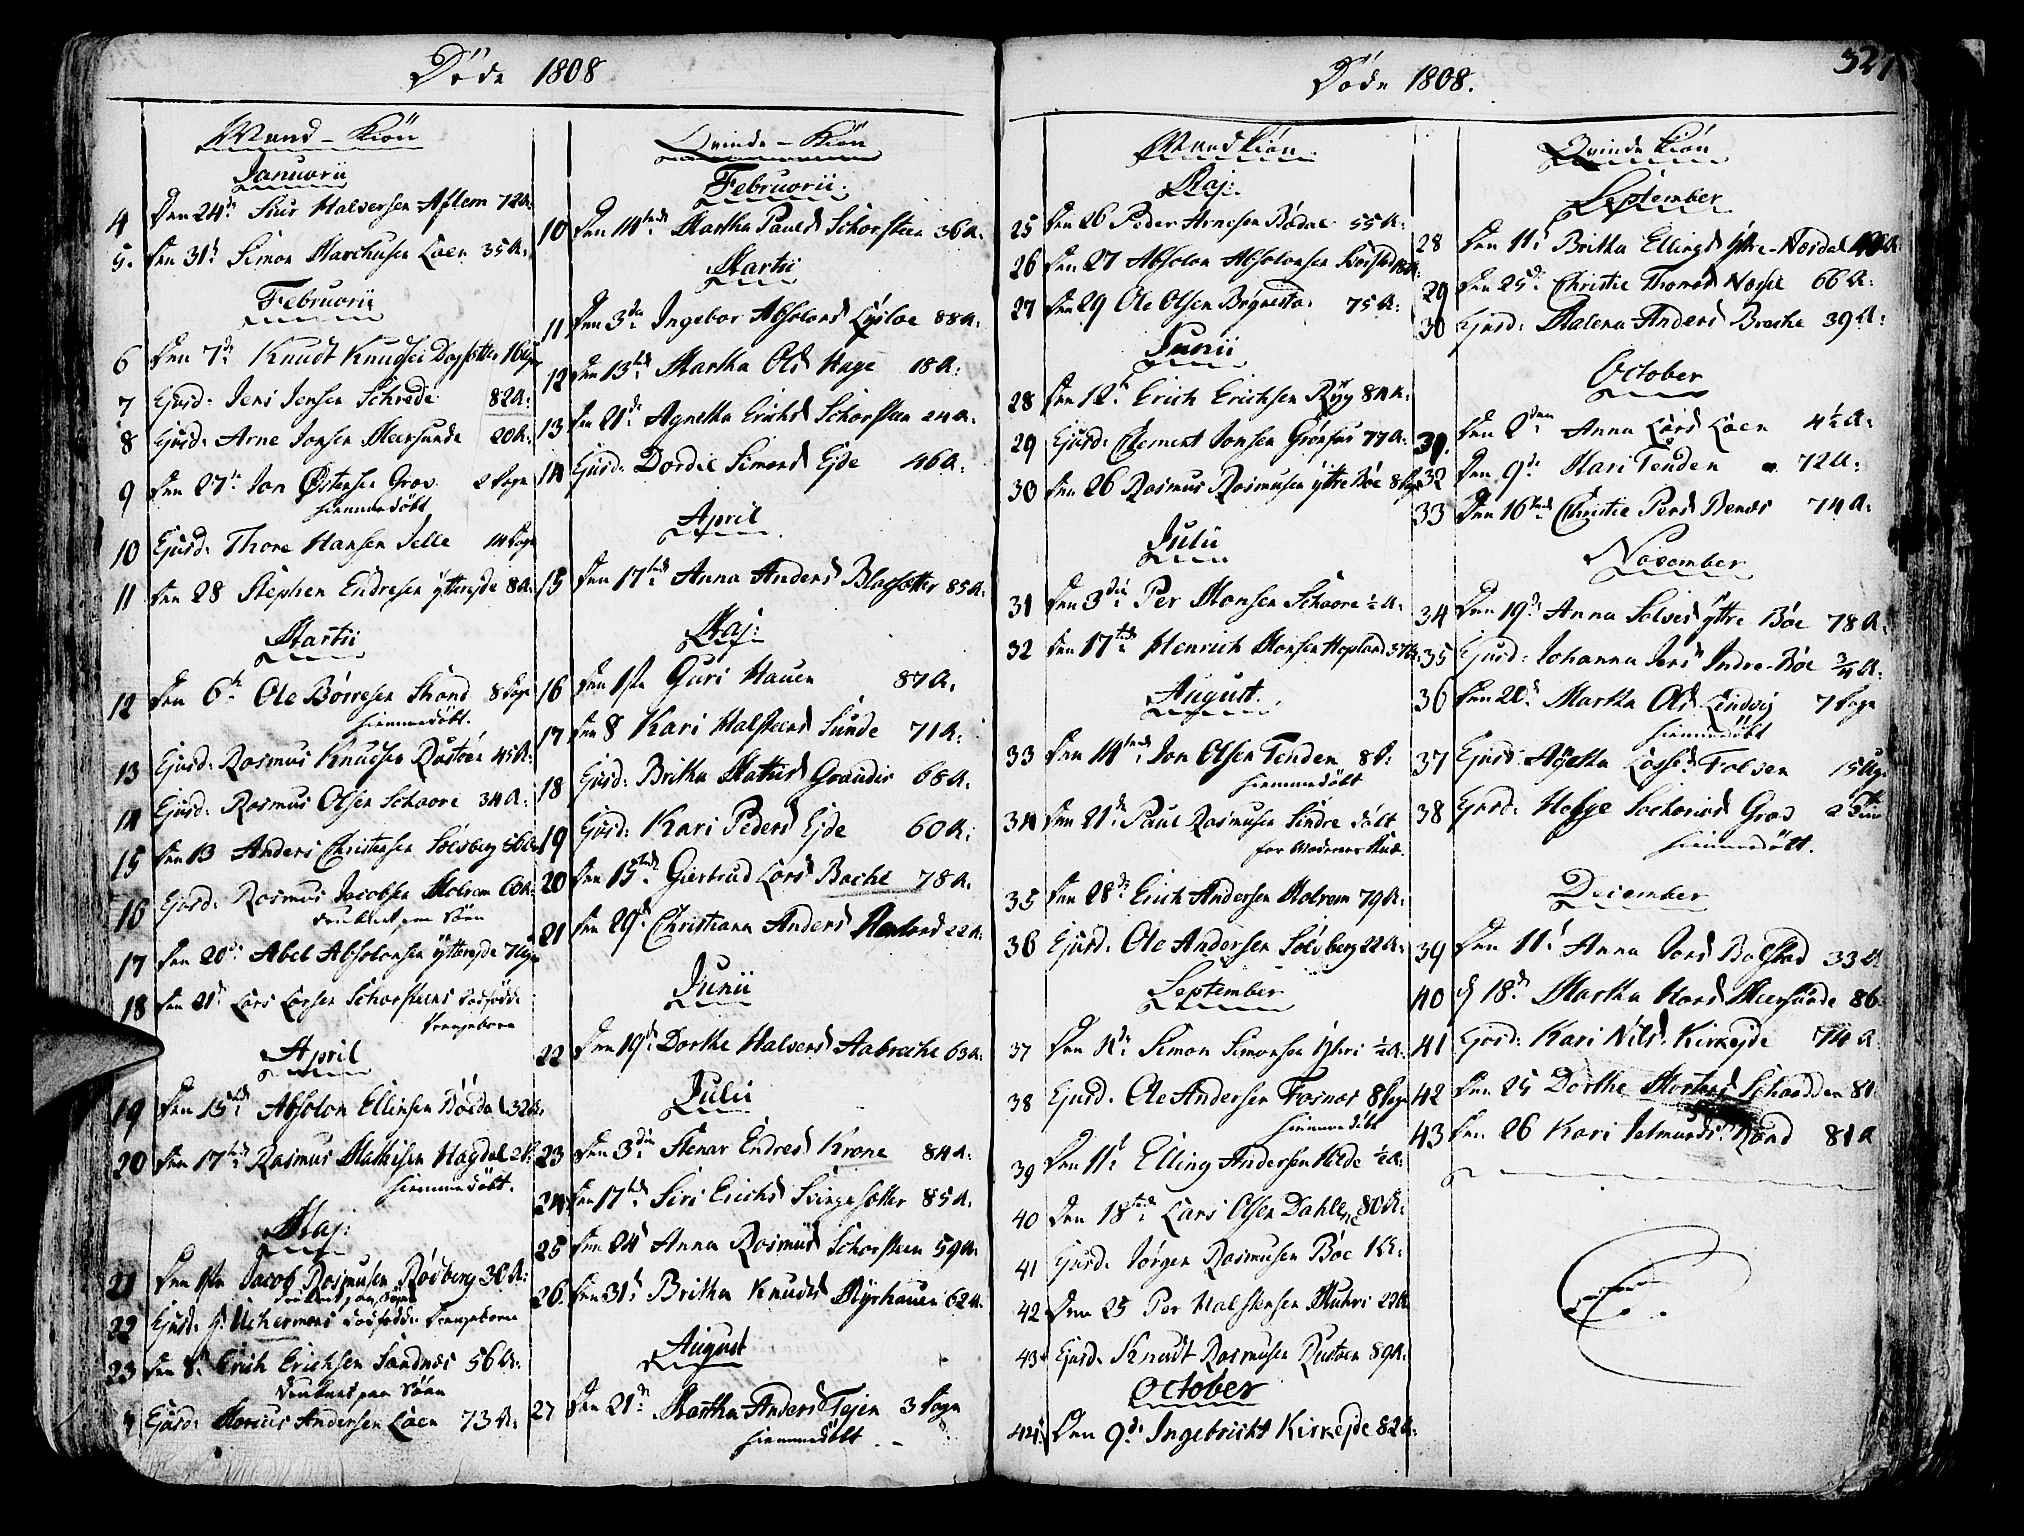 Døde 1808
Mand-Kiön
Januarii
4 Den 24de Siur Halversen Aflem 72 A:
5. Den 31te Simon Marchusen Loen 35 A:
Februarii
6 Den 7de Knudt Knudsen
7 Ejusd: Jens Jensen Schrede 82 A:
8 Ejusd: Arne Jonsen Meersunde 20 A:
9 Den 27de Jon Østensen Grov 2 Dage
hiemmedöbt
10 Ejusd: Thore Hansen Jelle 14 Dage
11 Den 28 Stephen Endresen Yttreejde 8 A:
Martii
12 Den 6te Ole Börresen Strand 8 Dage
hiemmedöbt.
13 Ejusd: Rasmus Knudsen Rustöen 45 A:
14 Ejusd: Rasmus Olsen Schaare 34 A:
15 Den 13 Anders Christensen Solvberg
16 Ejusd: Rasmus Jacobsen Molrem 60 A:
druknet paa Söen
17 Den 20de Abel Absolonsen Yttreejde 7
18 Den 21de Lars Larsen Schorsteens Dødfødde
Drengebarn
April
19 Den 15tende Absolon Ellinsen Bödal 32 A:
20 Den 17tende Rasmus Mathisen Hogdal
hiemmedöbt.
Maj:
21 Den 1ste Jacob Rasmusen Rødberg 30 A:
druknet paa Söen
22 Ejusd: Uchermans Dödfödde Drengebarn
23 Den 8de Erich Erichsen Sandnæs 56 A:
druknet paa Söen
Ejusd: Marcus Andersen Loen 73 A:
Qvinde-Kiön
Februarii.
10 Den 14tende Martha Pauls D Schorsteen 36 A:
Martii
11 Den 3die Ingebor Absolons D Lysloe 88 A:
12 Den 13tende Martha Ols D Hage 18 A:
13 Den 21de Agnetha Erichs D Schorsteen 24 A:
14 Ejusd: Dordie Simons D Ejde 46 A:
April
15 Den 17tende Anna Anders D Blacsætter 85 A:
Maj:
16 Den 1ste Guri Hauen 87 A:
17 Den 8 Kari Halsteens D Sunde 71 A:
18 Ejusd: Britha Mathis D Grandis 68 A:
19 Ejusd: Kari Peders D Ejde 60 A:
20 Den 15tende Giertrud Lars D Bache 78 A:
21 Den 29de Christiana Anders D 22 A:
Junii
22 Den 19de Dorthe Halvers D Aabrecke 63 A:
Julii
23 Den 3die Stenar Endres D Krone 84 A:
24 Den 17tende Siri Erichs D Svingesætter 85 A:
25 Den 24de Anna Rasmus D Schorsteen 59 A:
26 Den 31te Britha Knuds D Myrhauen 62 A:
August
27 Den 21de Martha Anders D Tejen 3 Dage
hiemmedöbt.
Døde 1808.
321
Mandkiön.
Maj:
25 Den 26 Peder Arnesen Bödal 55 A:
26 Den 27 Absolon Absolonsen
27 Den 29 Ole Olsen Bögnestad 75 A:
Junii
28 Den 12te Erich Erichsen Ryg 84 A:
29 Ejusd: Clement Jonsen Grönfur 77 A:
30 Den 26 Rasmus Rasmusen Yttre Böe 8 Dage
Julii
31 Den 3die Per Monsen Schaare ½ A:
32 Den 17tende Henrich Monsen Hopland
August.
33 Den 14tende Jon Olsen Tenden 8 D:
hiemmedöbt
34 Den 21de Paul Rasmusen Sindre
35 Den 28de Erich Andersen Molrem 79 A:
36 Ejusd: Ole Andersen Solvberg 22 A:
September
37 Den 4de Simon Simonsen ½ A:
38 Ejusd: Ole Andersen Fosnæs 8 Dage
hiemmedöbt
39 Den 11te Elling Andersen Hilde ½ A:
40 Den 18tende Lars Olsen Dahlene 80 A:
41 Ejusd: Jørgen Rasmusen Böe 1 A:
42 Den 25 Per Halstensen Muhri 22 A:
43 Ejusd: Knudt Rasmusen Rustöen 89 A:
October
44 Den 9de Ingebricht Kirkejde 82 A:
Qvindekiön
September
28 Den 11te Britha Ellings D Ytre-Næsdal
29 Den 25de Christie Thomas D Nosse 66 A:
30 Ejusd: Malena Anders D Breche 39 A:
October
31. Den 2den Anna Lars D Loen 4½ A:
32 Den 9de Mari Tenden 72 A:
33 Den 16tende Christie Pers D Renæs 74 A:
November
34 Den 19de Anna Solves D Yttre Böe 78 A:
35 Ejusd: Johanna Jens D Indre-Böe ¾ A:
36 Den 20de Martha Ols D Lindvig 7 Dage
hiemmedöbt
37 Ejusd: Agetha Lasse D Folven 15
38 Ejusd: Helge Sacharias D Grov 2
hiemmedöbt.
December
39 Den 11te Anna Jons D Bolstad 33 A:
40 d 18de Martha Hans D Meersunde 86
41 Ejusd: Kari Nils D: Kirkejde 74 A.
42 Den 25 Dorthe Mortens D Schaadden 81
43 Den 26 Kari Jetmunds D Rand 81 A